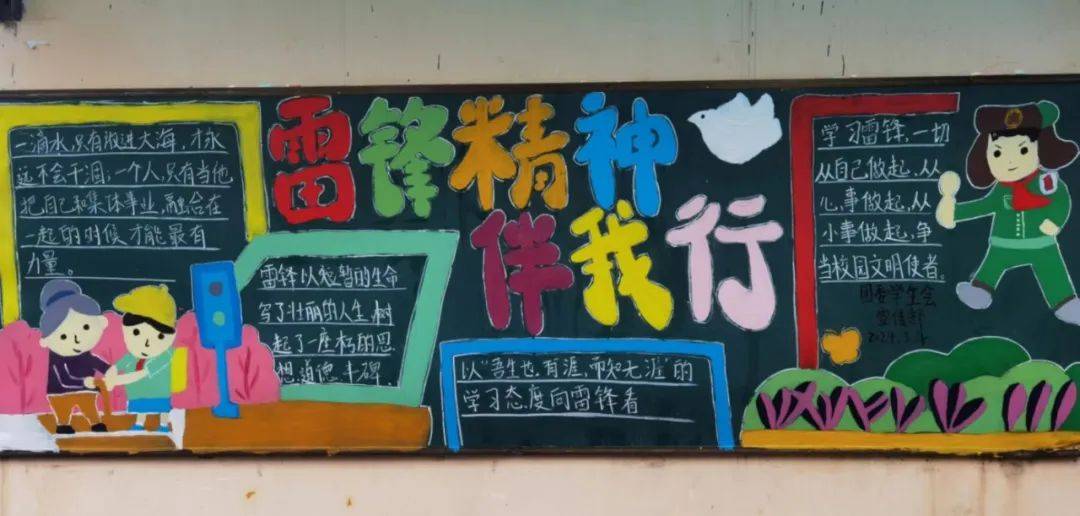 一滴水,只有放进大海,才永
远不会干涸,一个人,只有当他
把自己和集体事业,融合在
一起的时候才能最有
力量。
雷锋精神
伴我行
雷锋以短暂的生命
写了壮丽的人生,树
起了一座朽的思
想道德丰碑
以“吾生也有涯,而知无涯”的
学习态度向雷锋看
学习雷锋,一切
从自己做起,从
心,事做起,从
小事做起,争
当校园文明使者。
团委学生会
宣传部
2024.3.